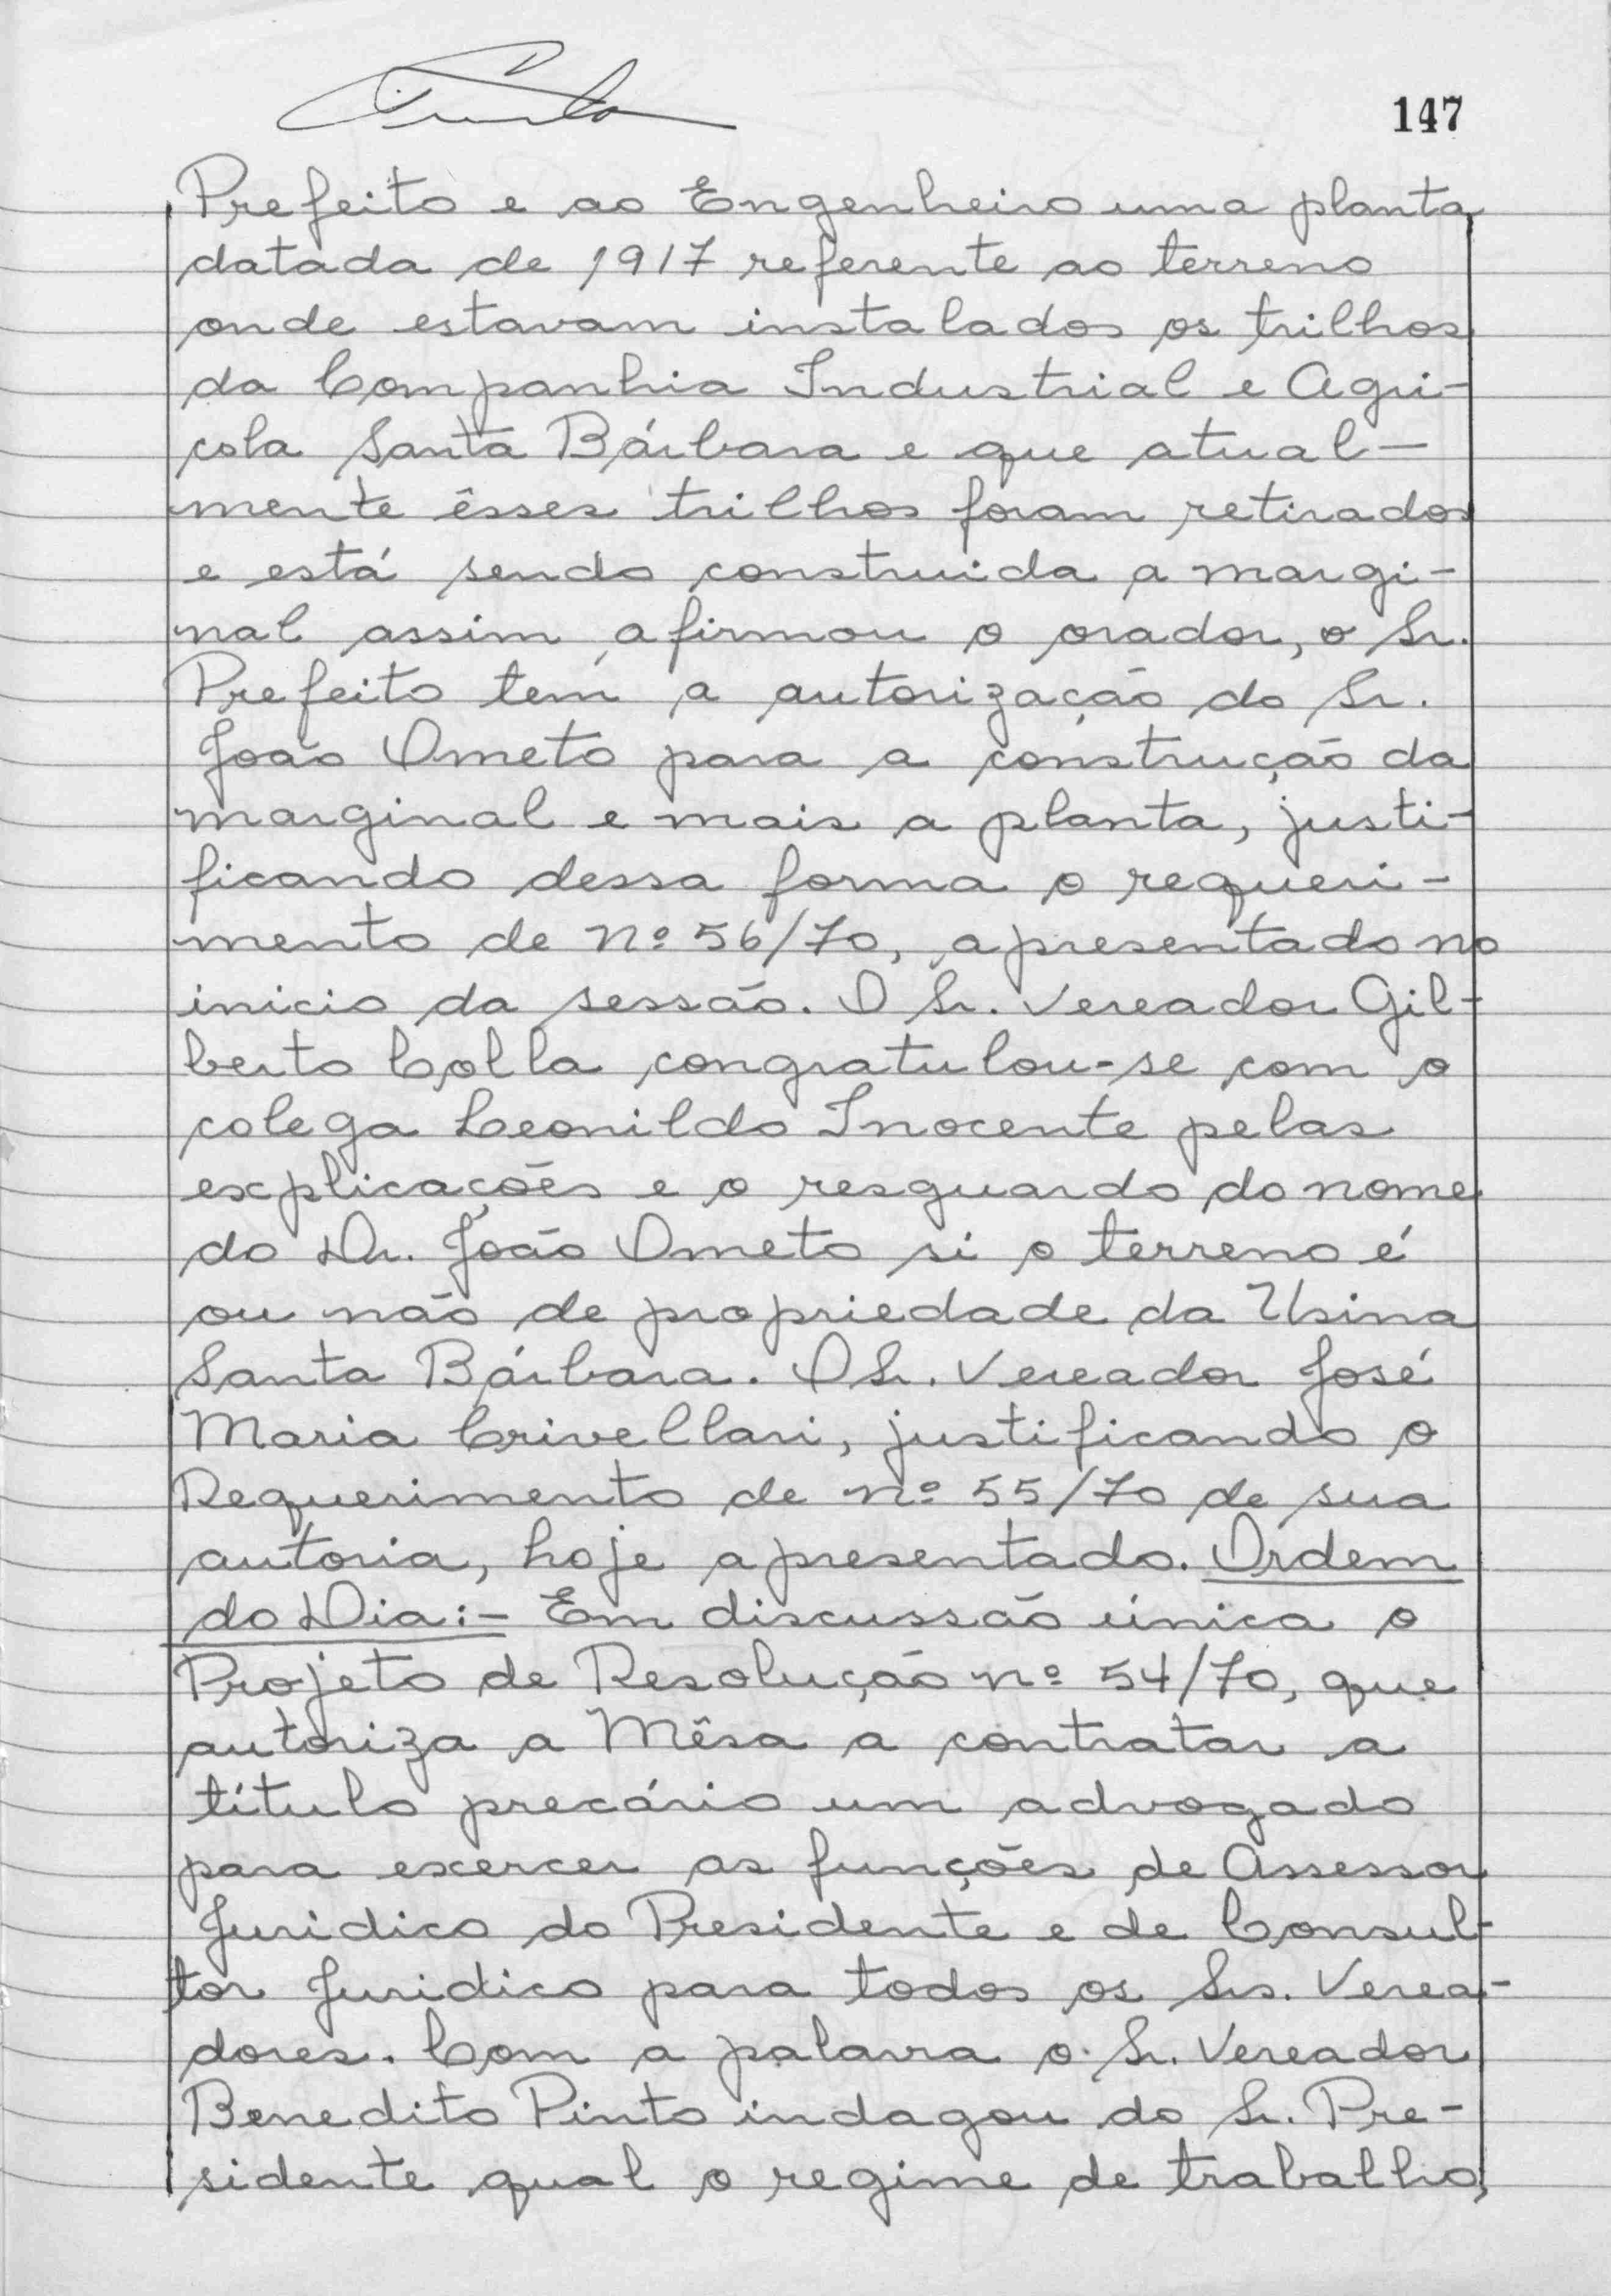 147
Prefeito e ao Engenheiro uma planta
datada de 1917 referente ao terreno
onde estavam instalados os trilhos
da Companhia Industrial e Agri-
cola Santa Bárbara e que atual-
mente êsses trilhos foram retirados
e está sendo construida a margi-
nal assim afirmou o orador, o Sr.
Prefeito tem a autorização do Sr.
João Ometo para a construção da
marginal e mais a planta, justi-
ficando dessa forma o requeri-
mento de nº 56/70, apresentado no
inicio da sessão. O Sr. Vereador Gil-
berto Colla congratulou-se com o
colega Leonildo Inocente pelas
explicações e o resguardo do nome
do Dr. João Ometo si o terreno é
ou não de propriedade da Usina
Santa Bárbara. O Sr. Vereador José
Maria Crivellari, justificando o
Requerimento de nº 55/70 de sua
autoria, hoje apresentado. Ordem
do Dia:- Em discussão única o
Projeto de Resolução nº 54/70, que
autoriza a Mêsa a contratar a
título precário um advogado
para excercer as funções de Assessor
Juridico do Presidente e de Consul-
tor Juridico para todos os Srs. Verea-
dores. Com a palavra o Sr. Vereador
Benedito Pinto indagou do Sr. Pre-
sidente qual o regime de trabalho,